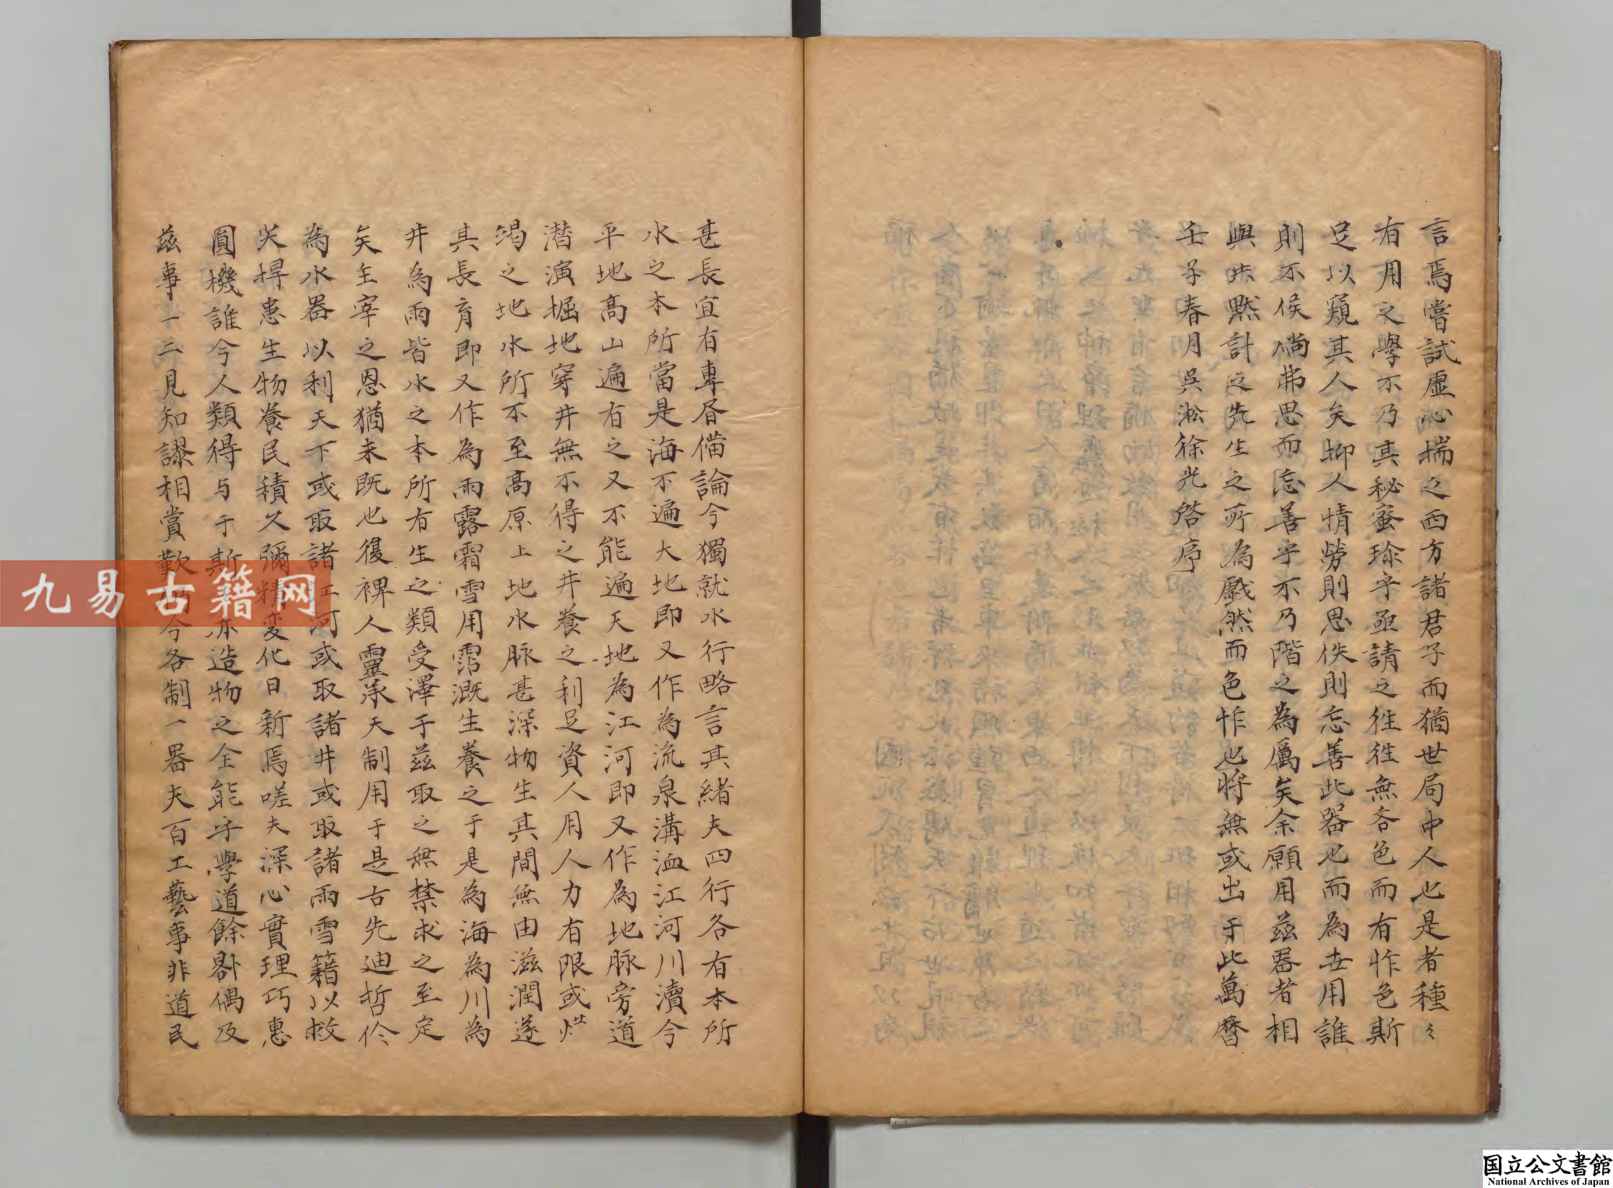 言焉嘗試虛心揣之西方諸君子而猶世局中人也是者種〻
有用之學不乃其秘蜜瑜乎亟請之徃徃無吝色而有怍色斯
足以窺其人矣抑人情勞則思佚則忘善此器也而為世用誰
則不俟倘弗思而忘善乎不乃階之為厲矣余願用茲器者相
與共默計之先生之所為蹙然而色怍也將無或出于此萬曆
壬子春月吳淞徐光啓序
甚長宜有專屠備論今獨就水行略言其緒夫四行各有本所
水之本所當是海不遍大地即又作為流泉溝洫江河川瀆今
平地高山遍有之又不能遍天地為江河即又作為地脉旁道
潛演掘地穿井無不得之井養之利足資人用人力有限或
竭之地水所不至高原上地水脉甚深物生其間無由滋潤遂
其長育即又作為雨露霜雪用霑溉生養之于是為海為川為
井為雨皆水之本所有生之類受澤于茲取之無禁求之至定
矣主宰之恩猶未既也復裨人靈承天制用于是古先迪哲伱
為水器以利天下或取諸江河或取諸井或取諸雨雪籍以救
灾捍患生物養民積久彌精變化日新焉嗟夫深心實理巧惠
圓機誰令人類得与于斯亦造物之全能乎學道餘晷偶及
茲事一二見知謬相賞歎今各制一器夫百工藝事非道民
九易古籍网
国立公文書館
National Archives of Japan